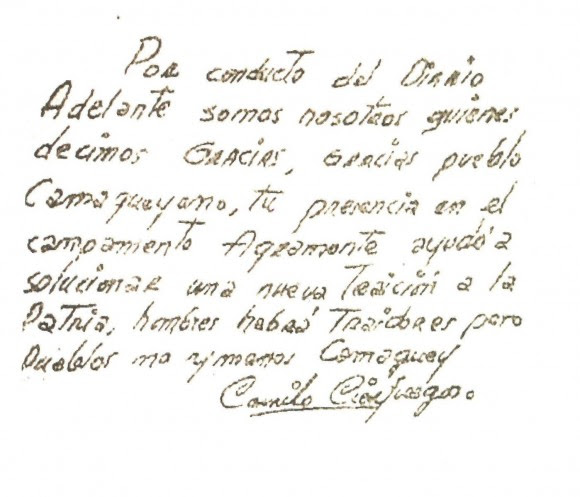 Por conducto del Diario
Adelante somos nosotros quienes
decimos Gracias, Gracias pueblo
Camagueyano, tu presencia en el
campamento Agramonte ayudó a
solucionar una nueva Traición a la
Patria, hombres habrá Traidores pero
Pueblos no y menos Camaguey
Camilo Cienfuegos.